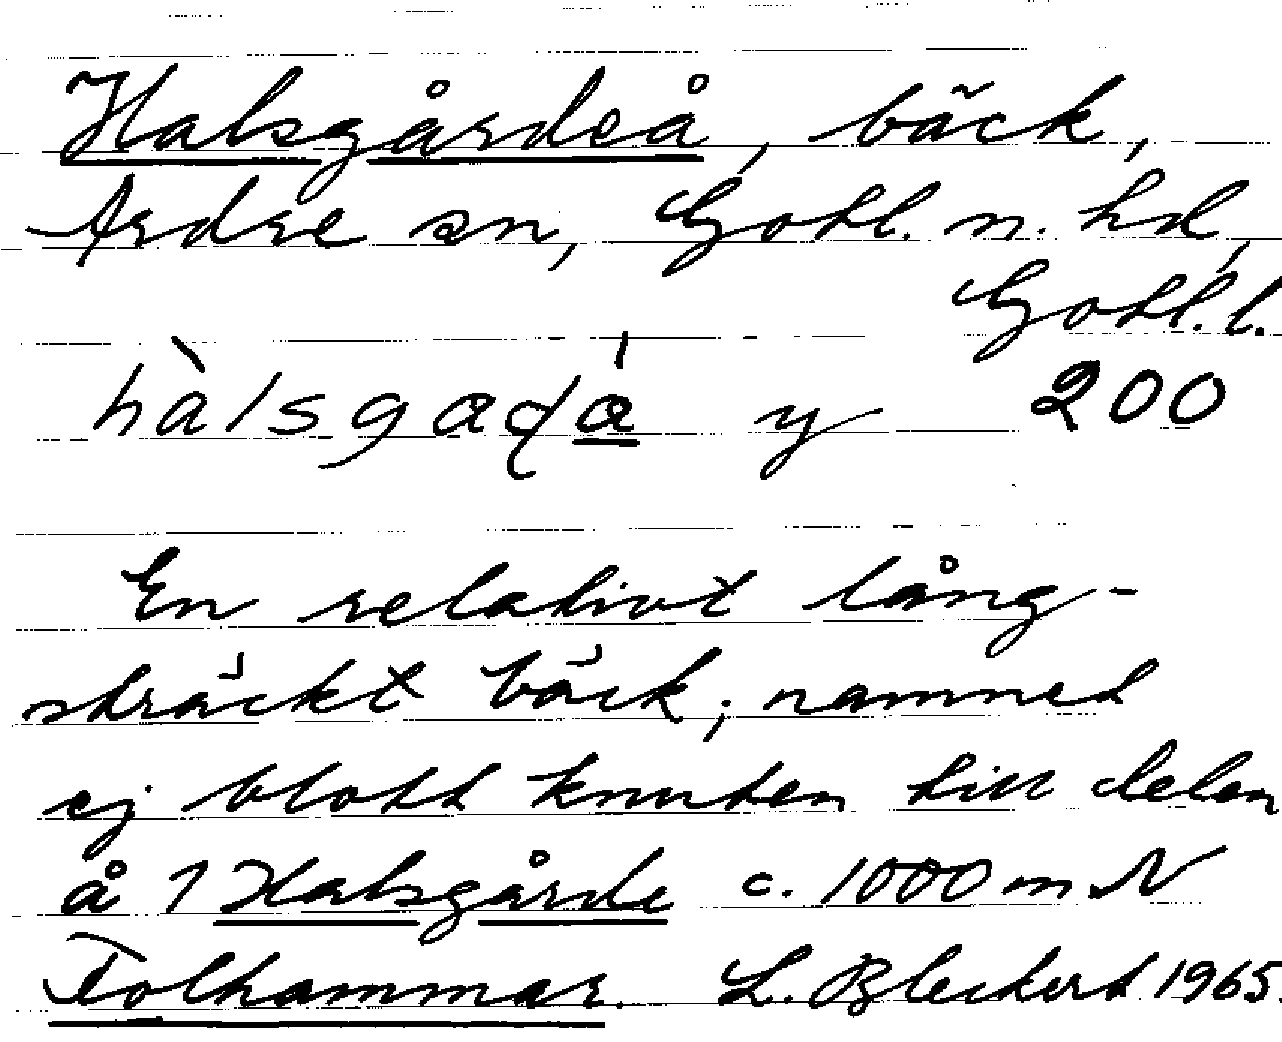 Halsgårdeå, bäck,
Ardre sn, Gotl. n. hd,
Gotl. l.
hàlsgaɖá y 200
En relativt lång-
sträckt bäck; namnet
ej blott knuten till delen
å 1 Halsgårde c. 1000 m N
Folhammar. L. Bleckert 1965.